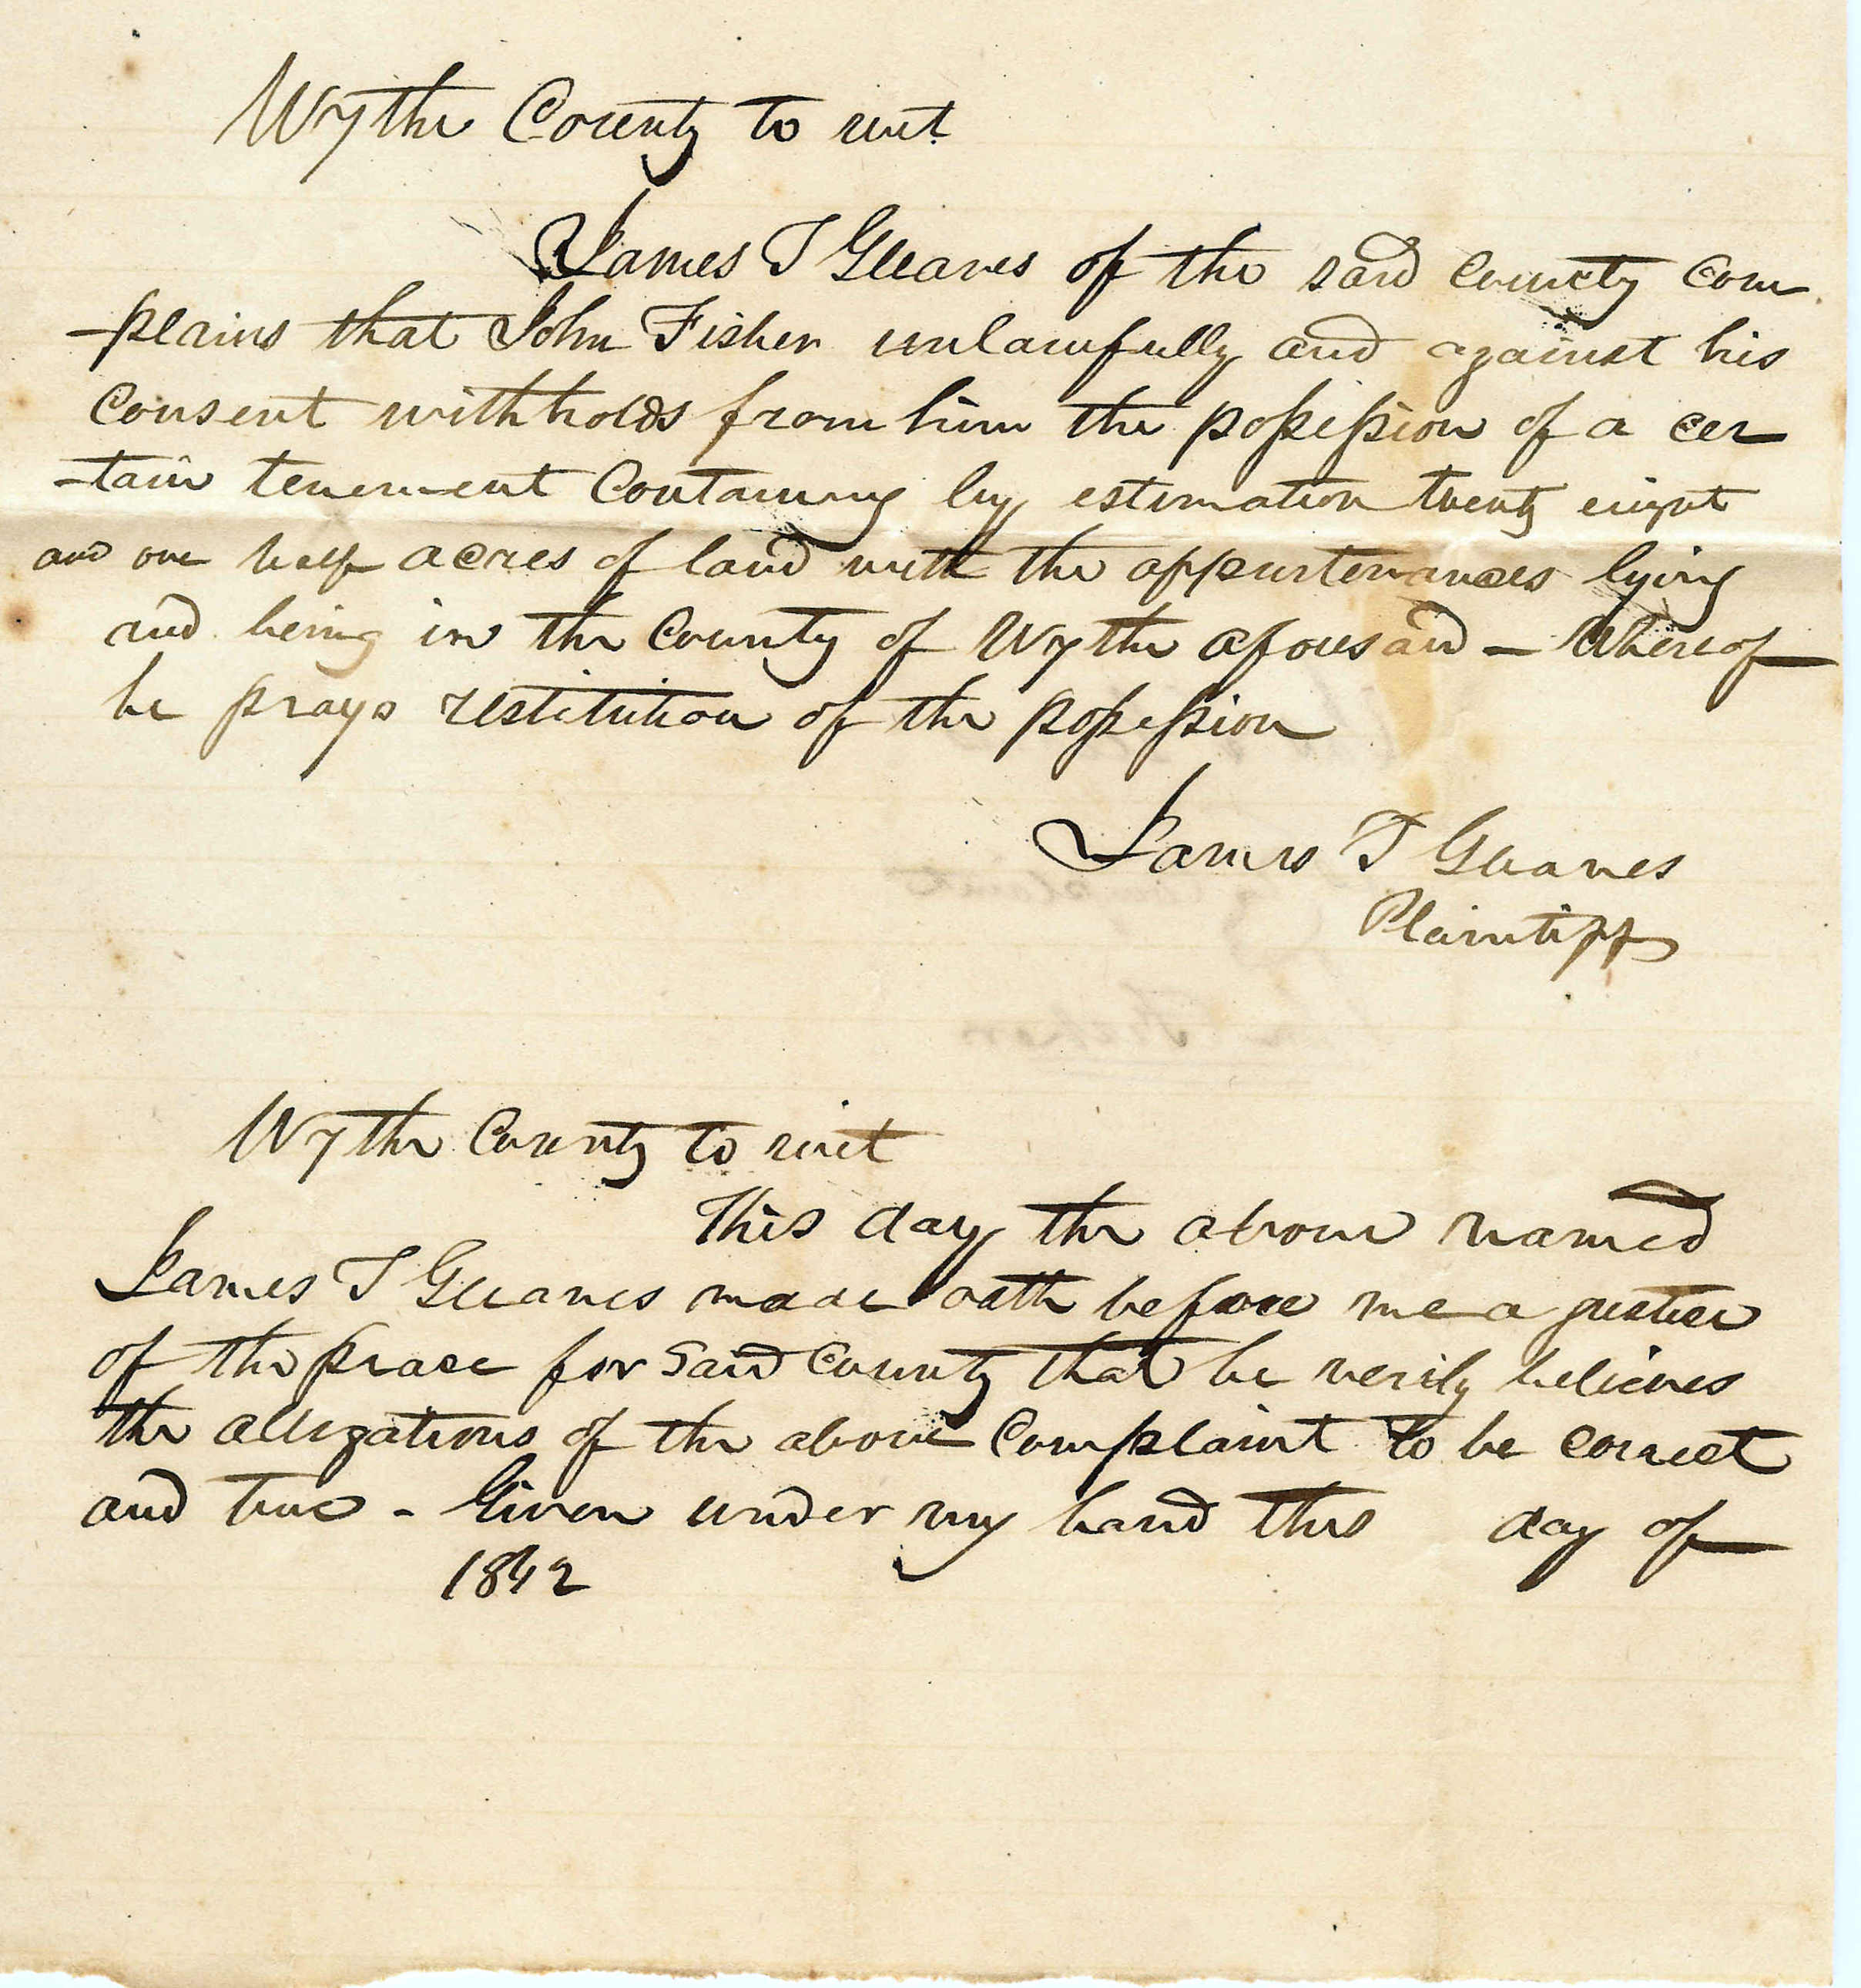 Wythe County to wit
James T Gleaves of the said County Com
-plains that John Fisher unlawfully and against his
Consent withholds from him the possession of a cer
-tain tenement Containing by estimation twenty eight
and one half acres of land with the appurtenances lying
and being in the County of Wythe aforesaid - Whereof
he prays restitution of the possession
James T Gleaves
Plaintiff
Wythe County to wit
This day the above named
James T Gleaves made oath before me a justice
of the peace for Said County that he verily believes
the allegations of the above Complaint to be correct
and true - Given under my hand this day of
1842